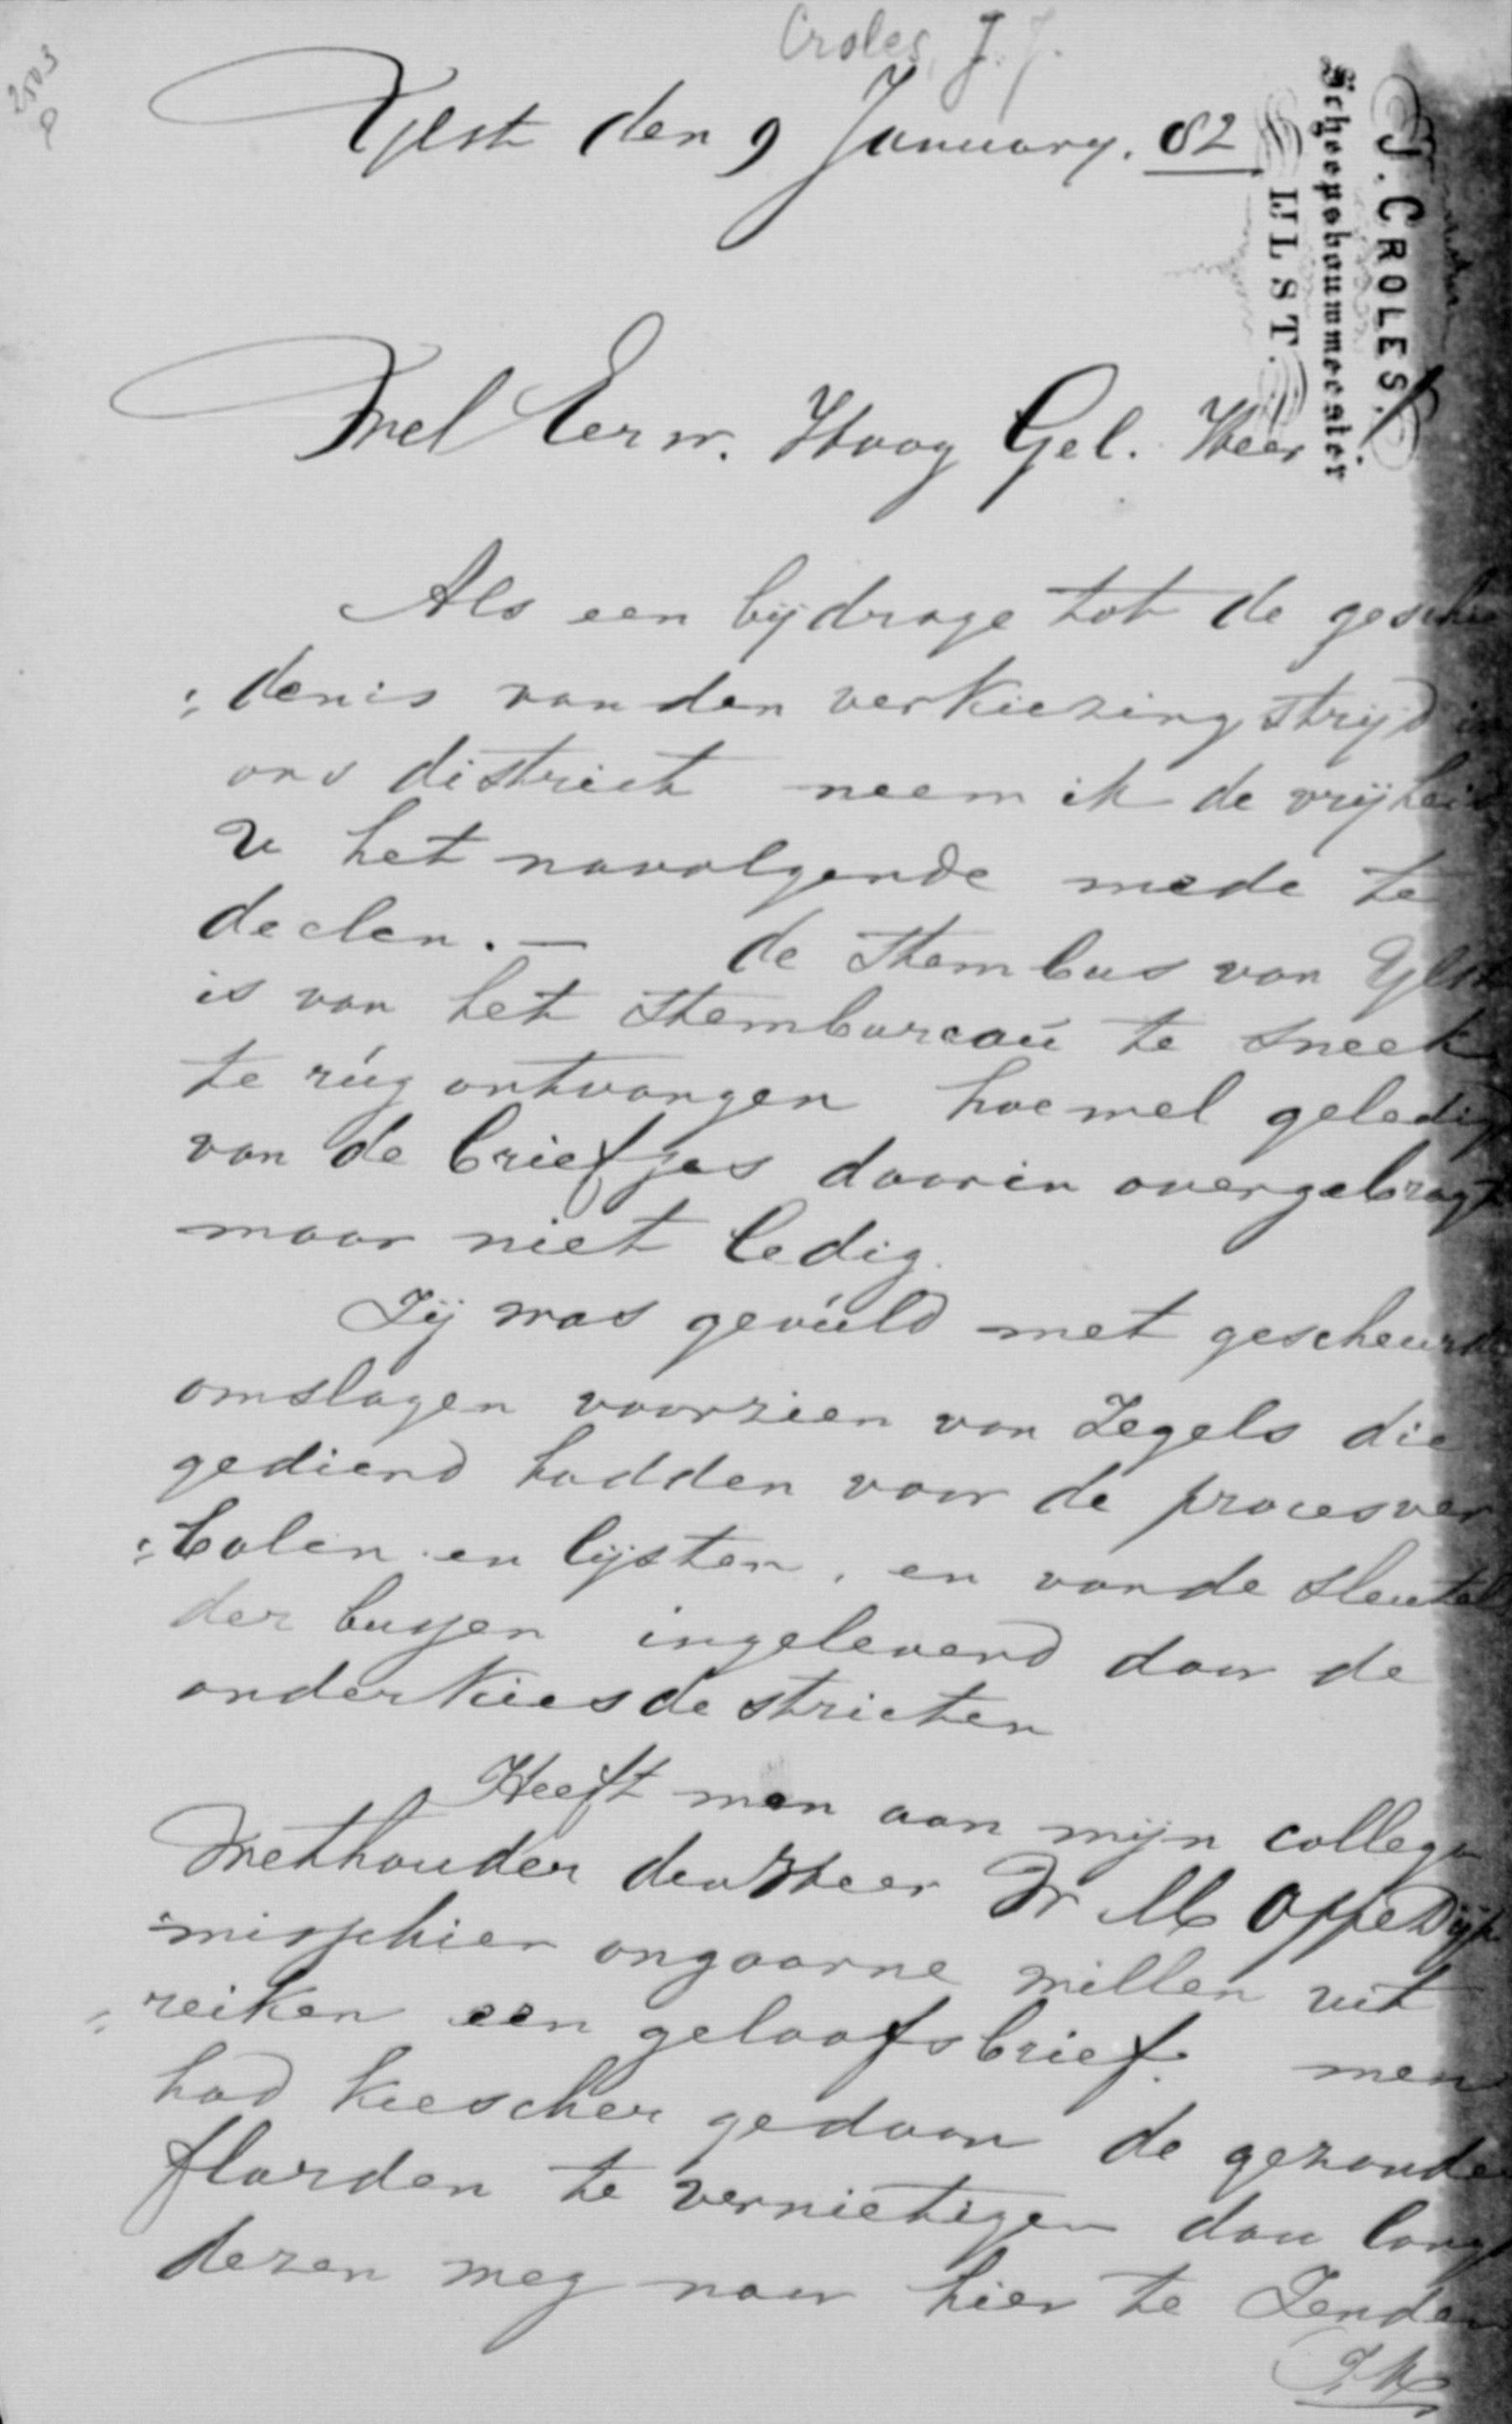 Croles, J. J.
2503
J. CROLES.
Scheepsbouwmeester
IJLST.
Ylst den 9 January. 82
Wel Eerw. Hoog Gel. Heer
Als een bijdrage tot de geschie
; denis van den verkiezing strijd in
ons district neem ik de vrijheid
U het navolgende mede te
deelen. — de stembus van Ylst
is van het stembureau te Sneek
te rúg ontvangen hoewel geledigd
van de briefjes daarin overgebragt
maar niet ledig.
Zij was gevúld met gescheurde
omslagen voorzien van Zegels die
gediend hadden voor de procesver
; balen en lijsten, en van de sleutels
der bussen ingeleverd door de
onderkiesdestricten
Heeft men aan mijn collega
Wethouder den Heer Dr M Oppedijk
misschien ongaarne willen uit
; reiken een geloofsbrief. men
had kiescher gedaan de gezonde
flarden te vernietigen dan langs
dezen weg naar hier te Zenden